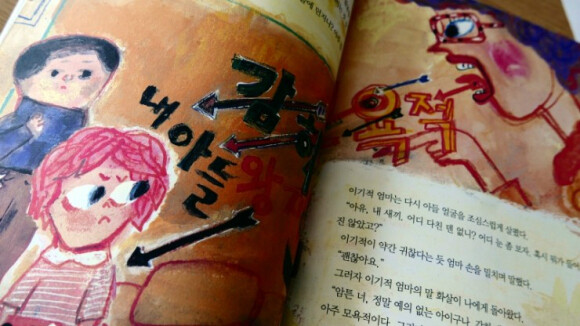 내 아들
감히
욕적
이기적 엄마는 다시 아들 얼굴을 조심스럽게 살폈다.
"아유, 내 새끼, 어디 다친 덴 없니? 어디 눈 좀 보자. 혹시 뭐가
진 않았고?"
이기적이 약간 귀찮다는 듯 엄마 손을 밀치며 말했다.
"괜찮아요."
그러자 이기적 엄마의 말 화살이 나에게 돌아왔다.
"암튼 너, 정말 예의 없는 아이구나.
아주 모욕적이다.